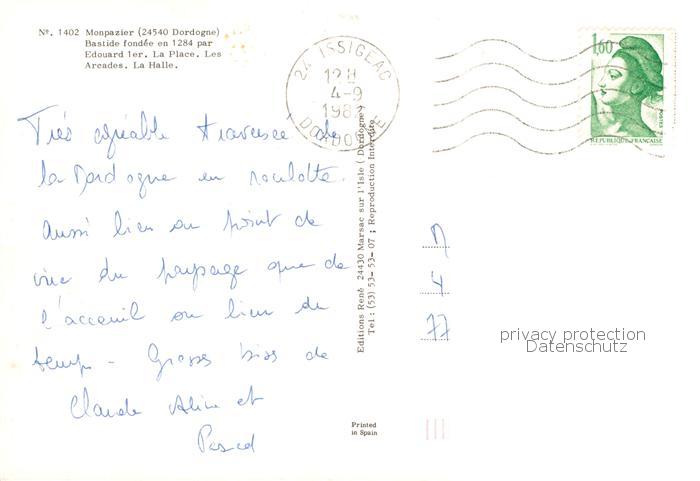 Nº. 1402 Monpazier (24540 Dordogne)
Bastide fondée en 1284 par
Edouard 1er. La Place. Les
Arcades. La Halle.
24 ISSIGEAC
12 H
4-9
198
DORDOGNE
1,60
POSTES
REPUBLIQUE FRANÇAISE
Très agréable traversée de
la Dordogne en roulotte.
aussi bien au point de
vue du paysage que de
l'acceuil ou bien du
temps - Grosses bises de
Claude Aline et
Pascal
Editions René 24430 Marsac sur l'Isle (Dordogne)
Tel: (53) 53-53-07 ; Reproduction Interdite
Printed
in Spain
4
77
privacy protection
Datenschutz